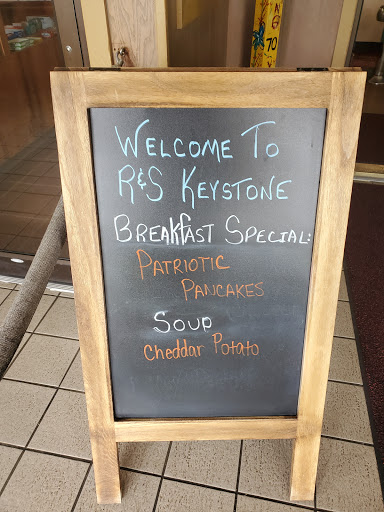 WELCOME TO
R&S KEYSTONE
BREAKFAST SPECIAL:
PATRIOTIC
PANCAKES
SOUP
Cheddar Potato
70